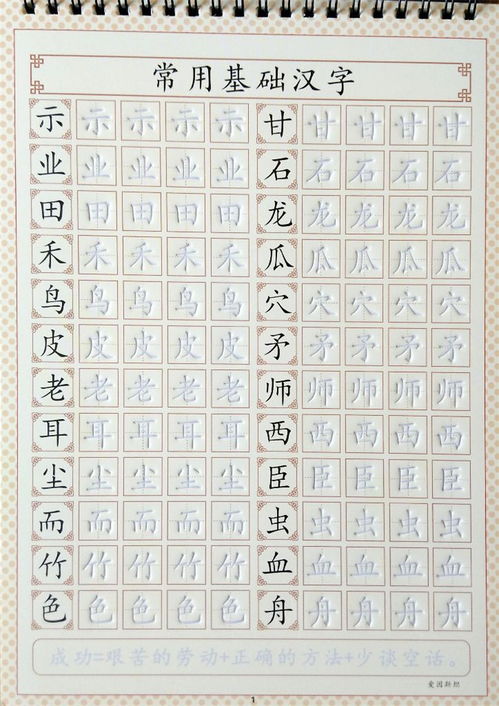 常用基础汉字
示 示 示 示 示 甘 甘 甘 甘 甘
业 业 业 业 业 石 石 石 石 石
田 田 田 田 田 龙 龙 龙 龙 龙
禾 禾 禾 禾 禾 瓜 瓜 瓜 瓜 瓜
鸟 鸟 鸟 鸟 鸟 穴 穴 穴 穴 穴
皮 皮 皮 皮 皮 矛 矛 矛 矛 矛
老 老 老 老 老 师 师 师 师 师
耳 耳 耳 耳 耳 西 西 西 西 西
尘 尘 尘 尘 尘 臣 臣 臣 臣 臣
而 而 而 而 而 虫 虫 虫 虫 虫
竹 竹 竹 竹 竹 血 血 血 血 血
色 色 色 色 色 舟 舟 舟 舟 舟
成功=艰苦的劳动+正确的方法+少谈空话。
爱因斯坦
1